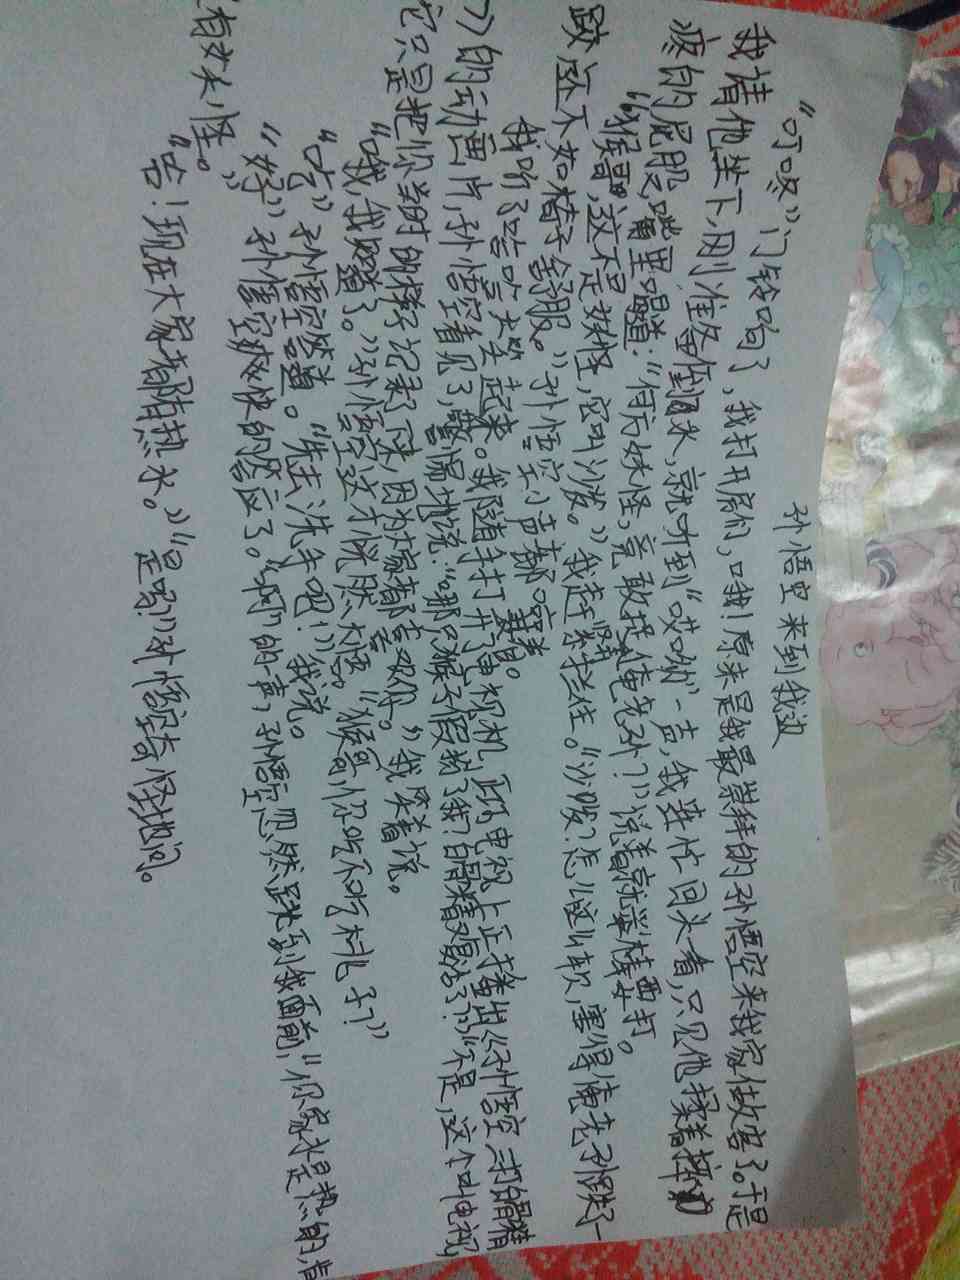 孙悟空来到我边
“叮咚”门铃响了，我打开房们，哦！原来是我最崇拜的孙悟空来我家做客了。于是
我请他坐下，刚准备倒水，就听到“哎哟”一声，我连忙回头看，只见他揉着摔
疼的屁股，嘴里喝道：“何方妖怪，竟敢捉俺老孙？”说着就举棒要打。
“猴哥，这不是妖怪，它叫沙发。”我赶紧拦住。“沙发？怎么这么软，害得俺老孙跌了一
跤还不如椅子舒服。”孙悟空小声嘟囔着。
我听了哈哈大笑起来。我随手打开了电视机，正巧电视上正播出《孙悟空三打白骨精
》的动画片，孙悟空看见了，警惕地说：“那只猴子假扮了我？白骨精又复活了？”“不是，这个叫电视，
它只是把你当时的样子记录了下来，因为大家都喜欢你。”我笑着说。
“哦，我知道了。”孙悟空这才恍然大悟。“猴哥，你吃不吃桃子？”
“吃”孙悟空答道。“先去洗手吧！”我说。
“好”孙悟空爽快的答应了。“啊”的一声，孙悟空忽然跳到我面前，“你家水是热的，肯
定有妖怪。”
“哈！现在大家都有热水。”“是吗？”孙悟空奇怪地问。